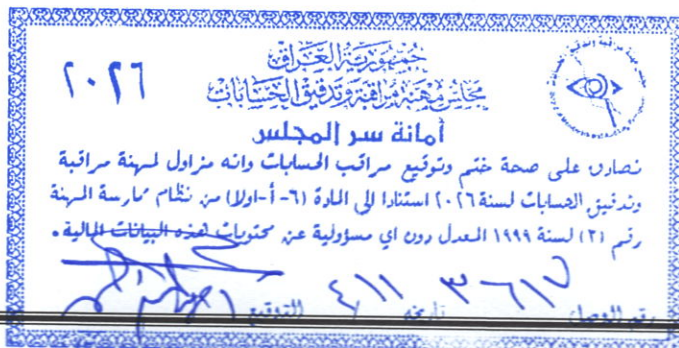 جمهورية العراق
٢٠٢٦
مجلس مهنة مراقبة وتدقيق الحسابات
أمانة سر المجلس
نصادق على صحة ختم وتوقيع مراقب الحسابات وانه مزاول لمهنة مراقبة
وتدقيق الحسابات لسنة ٢٠٢٦ استنادا الى المادة (٦-أ-اولا) من نظام ممارسة المهنة
رقم (٣) لسنة ١٩٩٩ المعدل دون اي مسؤولية عن محتويات هذه البيانات المالية.
رقم الوصل تاريخه ٤/١١ التوقيع